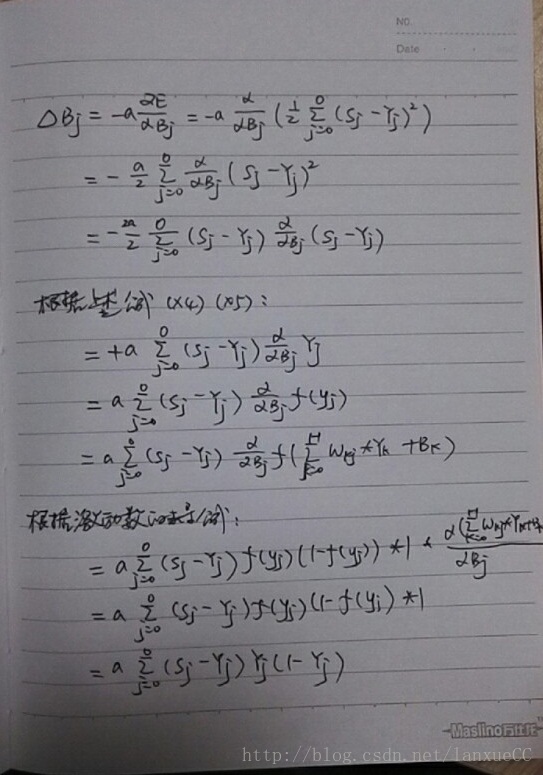 NO.
Date
ΔBj = -a ∂E/∂Bj = -a ∂/∂Bj (1/2 Σ_{j=0}^{O} (Sj - Yj)²)
= - a/2 Σ_{j=0}^{O} ∂/∂Bj (Sj - Yj)²
= - 2a/2 Σ_{j=0}^{O} (Sj - Yj) ∂/∂Bj (Sj - Yj)
根据上述公式 (x4) (x5):
= +a Σ_{j=0}^{O} (Sj - Yj) ∂/∂Bj Yj
= a Σ_{j=0}^{O} (Sj - Yj) ∂/∂Bj f(yj)
= a Σ_{j=0}^{O} (Sj - Yj) ∂/∂Bj f(Σ_{k=0}^{H} Wkj * Yk + Bk)
根据激励函数的求导公式:
= a Σ_{j=0}^{O} (Sj - Yj) f(yj) (1 - f(yj)) * 1 * ∂(Σ_{k=0}^{H} Wkj * Yk + B / ∂Bj
= a Σ_{j=0}^{O} (Sj - Yj) f(yj) (1 - f(yj) * 1
= a Σ_{j=0}^{O} (Sj - Yj) Yj (1 - Yj)
http://blog.csdn.net/lanxueCC